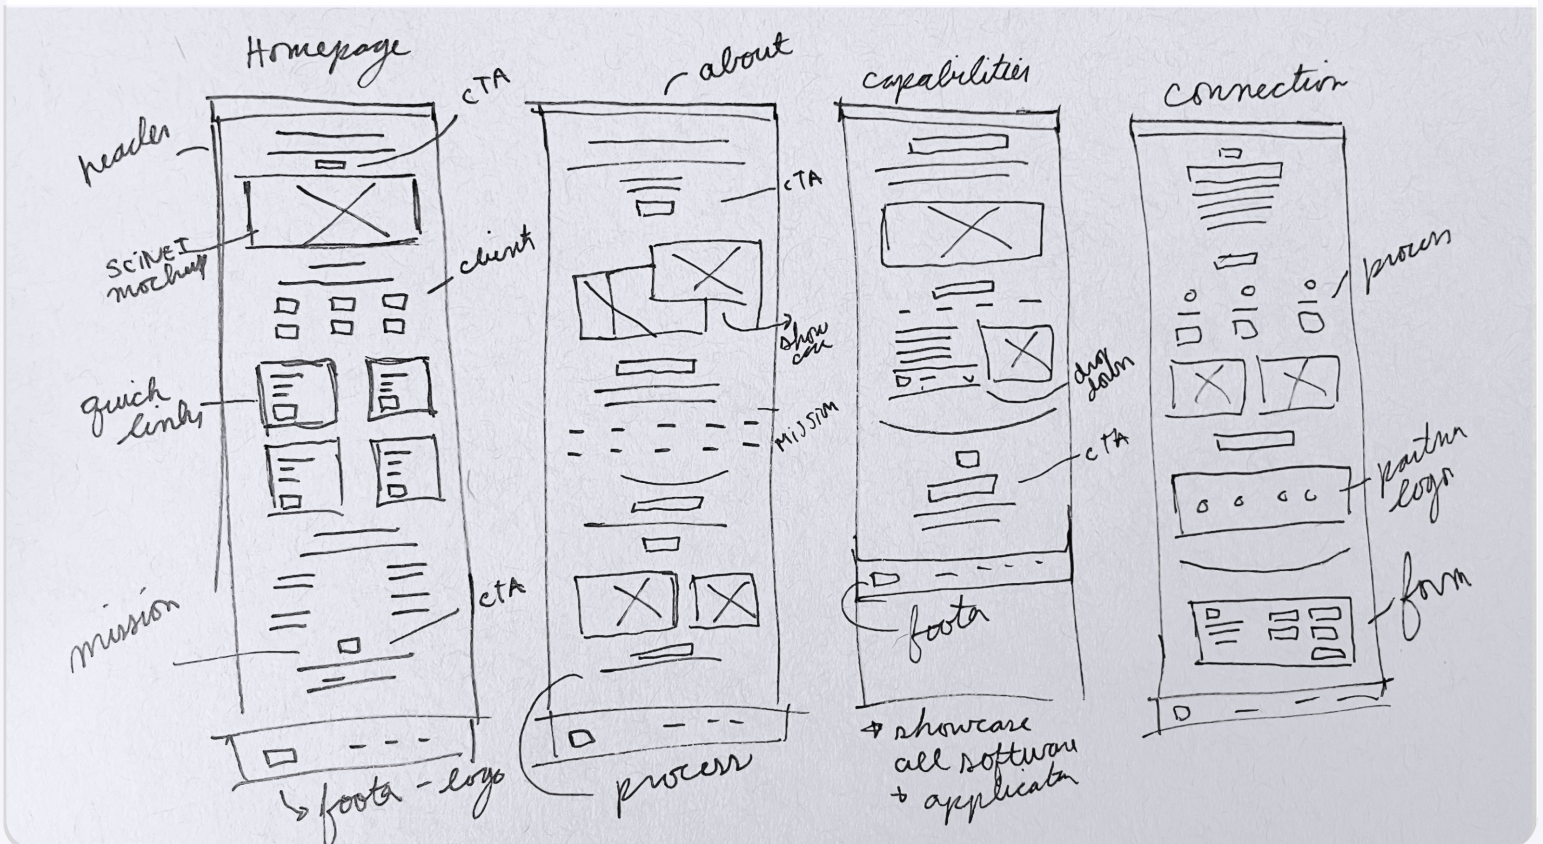 Homepage
cTA
header
SciNET
mockup
client
quick
links
mission
cTA
foota - logo
about
cTA
show
case
Mission
process
capabilities
drop
down
cTA
foota
→ showcase
all software
+ applicaton
connection
process
partna
logo
form